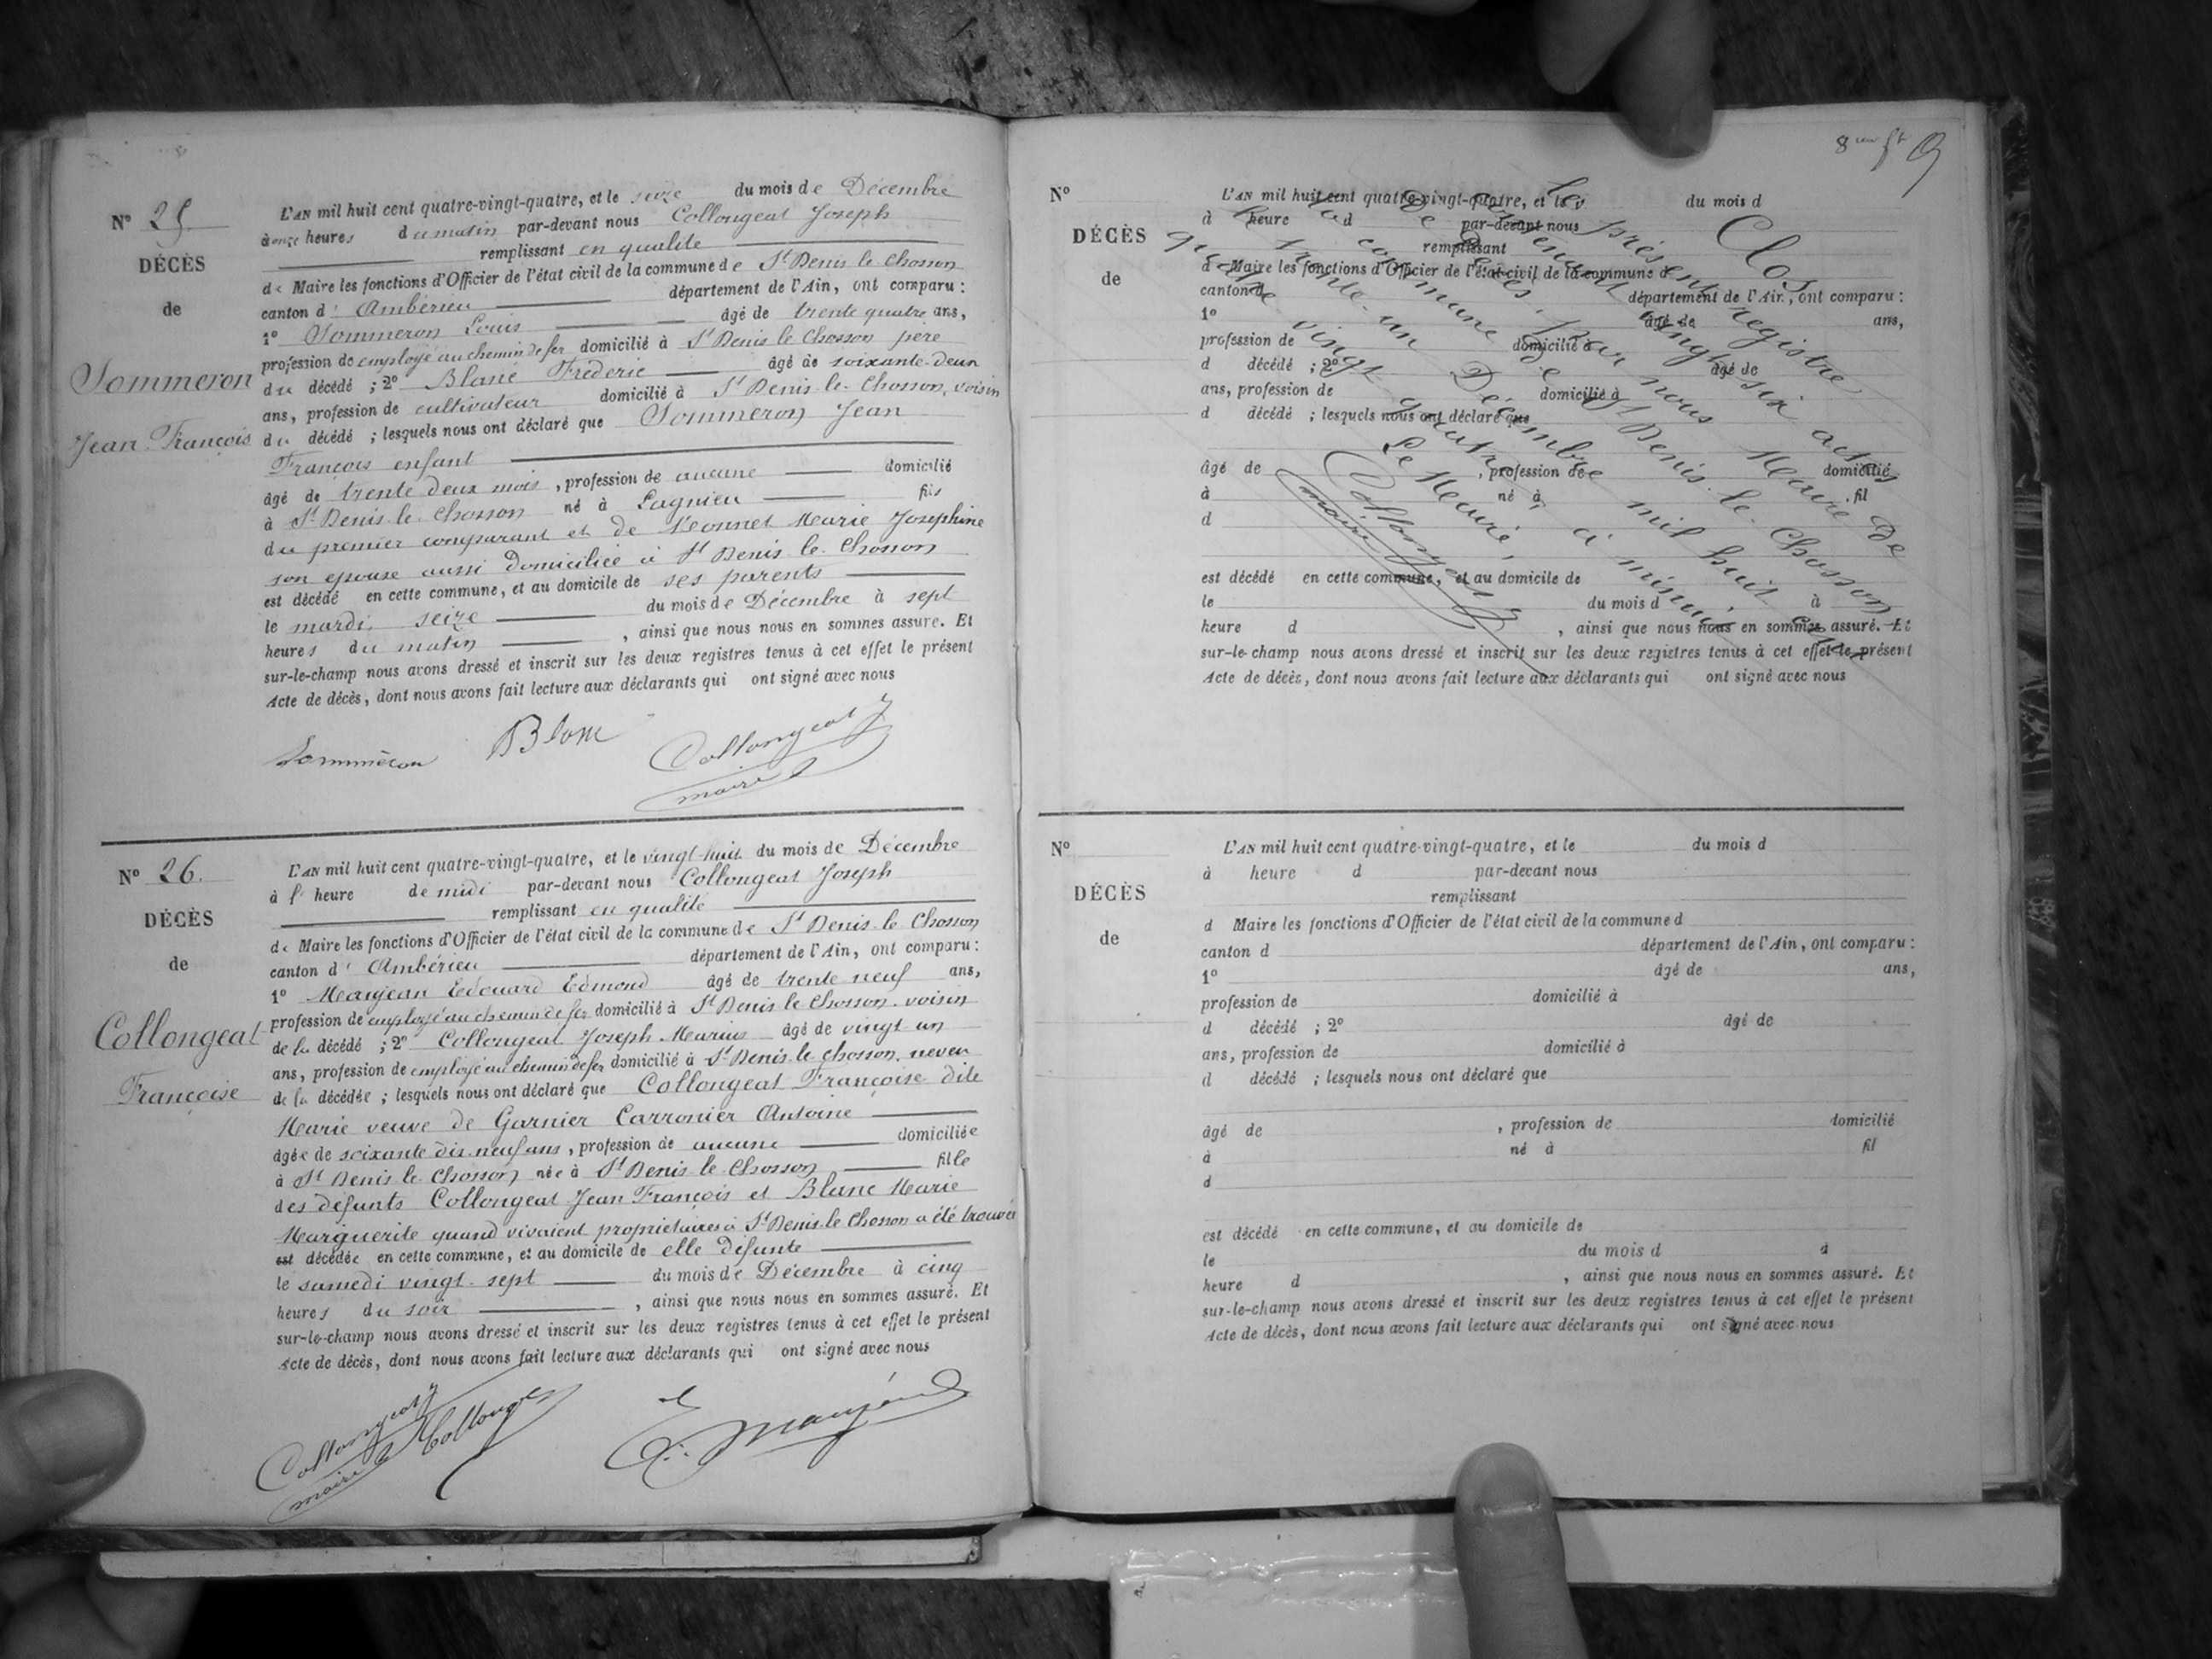 N° 25.
DÉCÈS
de
Sommeron
Jean François
L'AN mil huit cent quatre-vingt-quatre, et le seize du mois de Décembre
à onze heures du matin par-devant nous Collongeat Joseph
remplissant en qualité
de Maire les fonctions d'Officier de l'état civil de la commune de St Denis le Chosson
canton d' Ambérieu département de l'Ain, ont comparu :
1° Sommeron Louis âgé de trente quatre ans,
profession de employé au chemin de fer domicilié à St Denis le Chosson père
du décédé ; 2° Blanc Frédéric âgé de soixante-deux
ans, profession de cultivateur domicilié à St Denis le Chosson, voisin
du décédé ; lesquels nous ont déclaré que Sommeron Jean
François enfant
âgé de trente deux mois, profession de aucune domicilié
à St Denis le Chosson né à Lagnieu fils
du premier comparant et de Marie Josephine
son épouse aussi domiciliée à St Denis le Chosson
est décédé en cette commune, et au domicile de ses parents
le mardi seize du mois de Décembre à sept
heures du matin, ainsi que nous nous en sommes assuré. Et
sur-le-champ nous avons dressé et inscrit sur les deux registres tenus à cet effet le présent
Acte de décès, dont nous avons fait lecture aux déclarants qui ont signé avec nous
Sommeron Blanc Collongeat J
maire
N° 26.
DÉCÈS
de
Collongeat
Françoise
L'AN mil huit cent quatre-vingt-quatre, et le vingt-huit du mois de Décembre
à l' heure de midi par-devant nous Collongeat Joseph
remplissant en qualité
de Maire les fonctions d'Officier de l'état civil de la commune de St Denis le Chosson
canton d' Ambérieu département de l'Ain, ont comparu :
1° Maujean Edouard Edmond âgé de trente neuf ans,
profession de employé au chemin de fer domicilié à St Denis le Chosson voisin
de la décédé ; 2° Collongeat Joseph Marius âgé de vingt un
ans, profession de employé au chemin de fer domicilié à St Denis le Chosson, neveu
de la décédée ; lesquels nous ont déclaré que Collongeat Françoise dite
Marie veuve de Garnier Carronier Antoine
âgée de soixante dix-neuf ans, profession de aucune domiciliée
à St Denis le Chosson née à St Denis le Chosson fille
des défunts Collongeat Jean François et Blanc Marie
Marguerite quand vivaient propriétaires à St Denis le Chosson a été trouvée
est décédée en cette commune, et au domicile de elle défunte
le samedi vingt-sept du mois de Décembre à cinq
heures du soir, ainsi que nous nous en sommes assuré. Et
sur-le-champ nous avons dressé et inscrit sur les deux registres tenus à cet effet le présent
Acte de décès, dont nous avons fait lecture aux déclarants qui ont signé avec nous
Collongeat J
maire Collongeat E. Maujean
N°
DÉCÈS
de
L'AN mil huit cent quatre-vingt-quatre, et le du mois d
à heure d par-devant nous
remplissant
d Maire les fonctions d'Officier de l'état civil de la commune d
canton d département de l'Ain, ont comparu :
1° âgé de ans,
profession de domicilié à
d décédé ; 2° âgé de
ans, profession de domicilié à
d décédé ; lesquels nous ont déclaré que
âgé de , profession de domicilié
à né à fil
d
est décédé en cette commune, et au domicile de
le du mois d à
heure d , ainsi que nous nous en sommes assuré. Et
sur-le-champ nous avons dressé et inscrit sur les deux registres tenus à cet effet le présent
Acte de décès, dont nous avons fait lecture aux déclarants qui ont signé avec nous
Clos
le présent registre
contenant vingt six actes
De Décès, par nous Maire De
la commune de St Denis le Chosson
le trente un Décembre mil huit cent
quatre vingt quatre à minuit
Le Maire,
Collongeat J
maire
N°
DÉCÈS
de
L'AN mil huit cent quatre-vingt-quatre, et le du mois d
à heure d par-devant nous
remplissant
d Maire les fonctions d'Officier de l'état civil de la commune d
canton d département de l'Ain, ont comparu :
1° âgé de ans,
profession de domicilié à
d décédé ; 2° âgé de
ans, profession de domicilié à
d décédé ; lesquels nous ont déclaré que
âgé de , profession de domicilié
à né à fil
d
est décédé en cette commune, et au domicile de
le du mois d à
heure d , ainsi que nous nous en sommes assuré. Et
sur-le-champ nous avons dressé et inscrit sur les deux registres tenus à cet effet le présent
Acte de décès, dont nous avons fait lecture aux déclarants qui ont signé avec nous